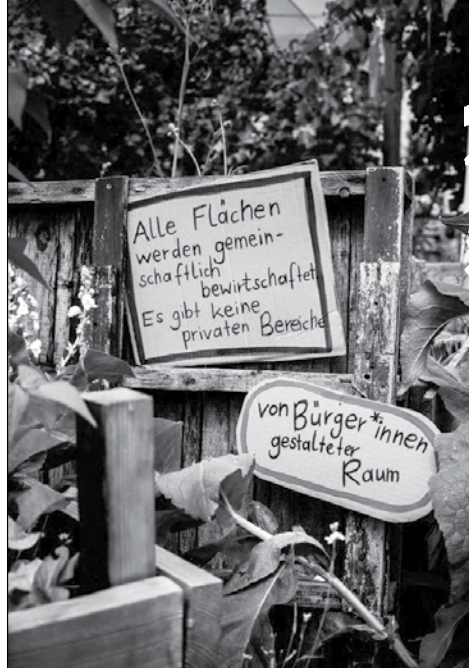 Alle Flächen
werden gemein-
schaftlich
bewirtschaftet
Es gibt keine
privaten Bereiche
von Bürger*innen
gestalteter
Raum